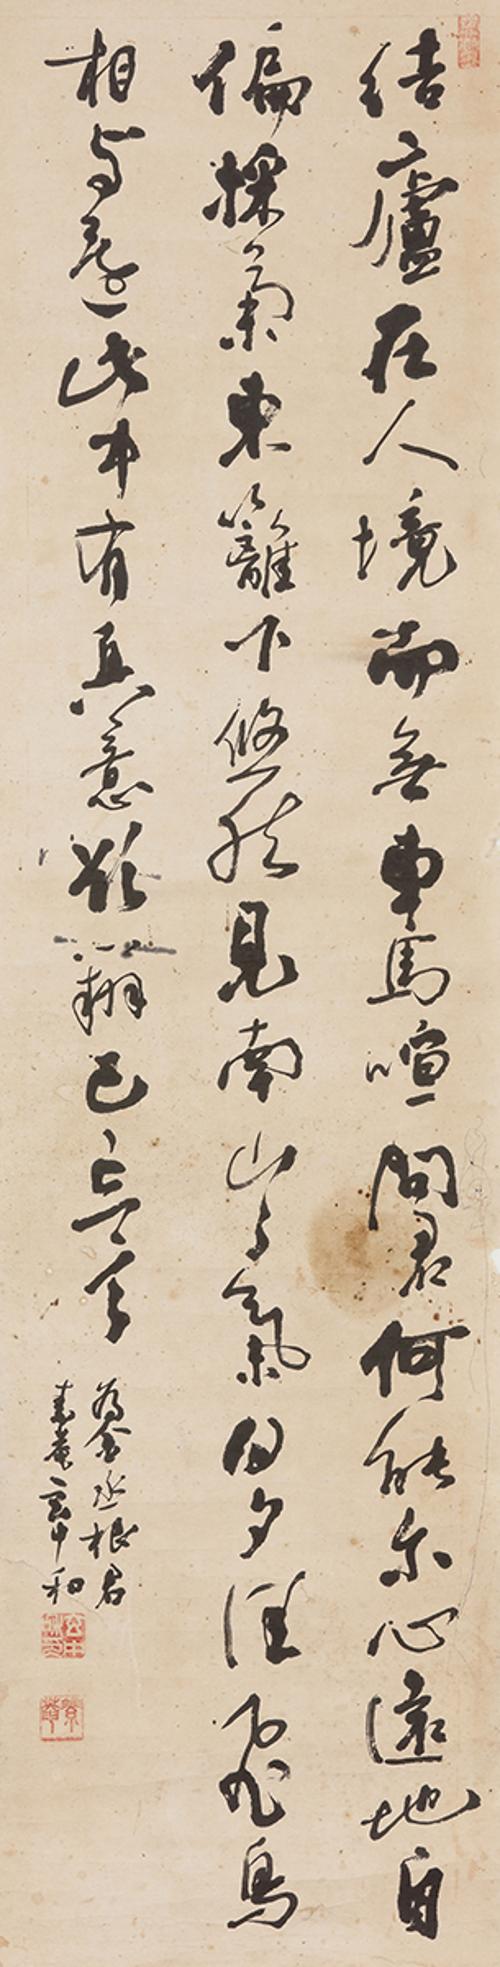 結廬在人境而無車馬喧問君何能尔心遠地自
偏採菊東籬下悠然見南山々氣日夕佳飛鳥
相与還此中有真意欲辨已忘言
為金丞根君
素菴玄中和